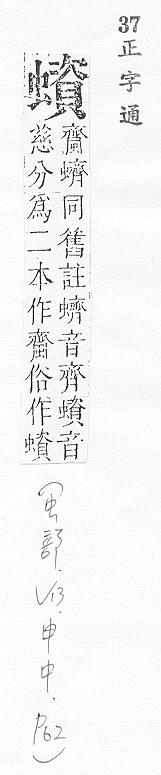 37
正字通
蠀
蠐同舊註蠐音齊蠀音
慈分為二本作俗作蠀
(虫部.V13.申中.P62)